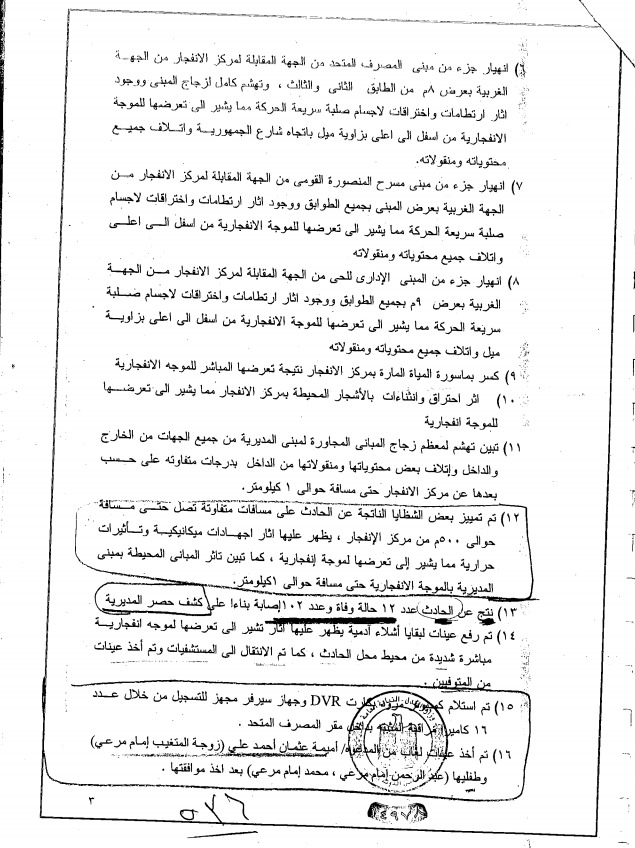 ٦) انهيار جزء من مبنى المصرف المتحد من الجهة المقابلة لمركز الانفجار من الجهة
الغربية بعرض ٨م من الطابق الثانى والثالث ، وتهشم كامل ازجاج المبنى ووجود
اثار ارتطامات واختراقات لاجسام صلبة سريعة الحركة مما يشير الى تعرضها للموجة
الانفجارية من اسفل الى اعلى بزاوية ميل باتجاه شارع الجمهورية واتلاف جميع
محتوياته ومنقولاته.
٧) انهيار جزء من مبنى مسرح المنصورة القومى من الجهة المقابلة لمركز الانفجار من
الجهة الغربية بعرض المبنى بجميع الطوابق ووجود اثار ارتطامات واختراقات لاجسام
صلبة سريعة الحركة مما يشير الى تعرضها للموجة الانفجارية من اسفل الى اعلى
واتلاف جميع محتوياته ومنقولاته
٨) انهيار جزء من المبنى الإدارى للحى من الجهة المقابلة لمركز الانفجار من الجهة
الغربية بعرض ٩م بجميع الطوابق ووجود اثار ارتطامات واختراقات لاجسام صلبة
سريعة الحركة مما يشير الى تعرضها للموجة الانفجارية من اسفل الى اعلى بزاوية
ميل واتلاف جميع محتوياته ومنقولاته
٩) كسر بماسورة المياة المارة بمركز الانفجار نتيجة تعرضها المباشر للموجه الانفجارية
١٠) اثر احتراق وانثناءات بالأشجار المحيطة بمركز الانفجار مما يشير الى تعرضها
للموجة انفجارية
١١) تبين تهشم لمعظم زجاج المبانى المجاورة لمبنى المديرية من جميع الجهات من الخارج
والداخل وإتلاف بعض محتوياتها ومنقولاتها من الداخل بدرجات متفاوته على حسب
بعدها عن مركز الانفجار حتى مسافة حوالى ١ كيلومتر.
١٢) تم تمييز بعض الشظايا الناتجة عن الحادث على مسافات متفاوتة تصل حتى مسافة
حوالى ٥٠٠م من مركز الإنفجار ، يظهر عليها اثار اجهادات ميكانيكية وتأثيرات
حرارية مما يشير إلى تعرضها لموجة إنفجارية ، كما تبين تاثر المبانى المحيطة بمبنى
المديرية بالموجة الانفجارية حتى مسافة حوالى ١كيلومتر.
١٣) نتج عن الحادث عدد ١٢ حالة وفاة وعدد ١٠٢ إصابة بناءا على كشف حصر المديرية
١٤) تم رفع عينات لبقايا أشلاء أدمية يظهر عليها اثار تشير الى تعرضها لموجه انفجارية
مباشرة شديدة من محيط محل الحادث ، كما تم الانتقال الى المستشفيات وتم أخذ عينات
من المتوفيين .
١٥) تم استلام كمبيوتر مزود بكارت DVR وجهاز سيرفر مجهز للتسجيل من خلال عدد
١٦ كاميرا مراقبة المثبته بداخل مقر المصرف المتحد .
١٦) تم أخذ عينات لعاب من المدعوة/ أميمة عثمان أحمد علي (زوجة المتغيب إمام مرعي)
وطفليها (عبد الرحمن إمام مرعي ، محمد إمام مرعي) بعد اخذ موافقتها .
٣
٥٧٦